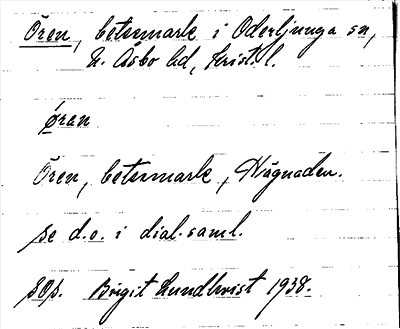 Ören, betesmark i Oderljunga sn,
N. Åsbo hd, Krist. l.
øran
Ören, betesmark, Hägnaden.
se d.o. i dial.saml.
sOp. Birgit Lundkvist 1938.